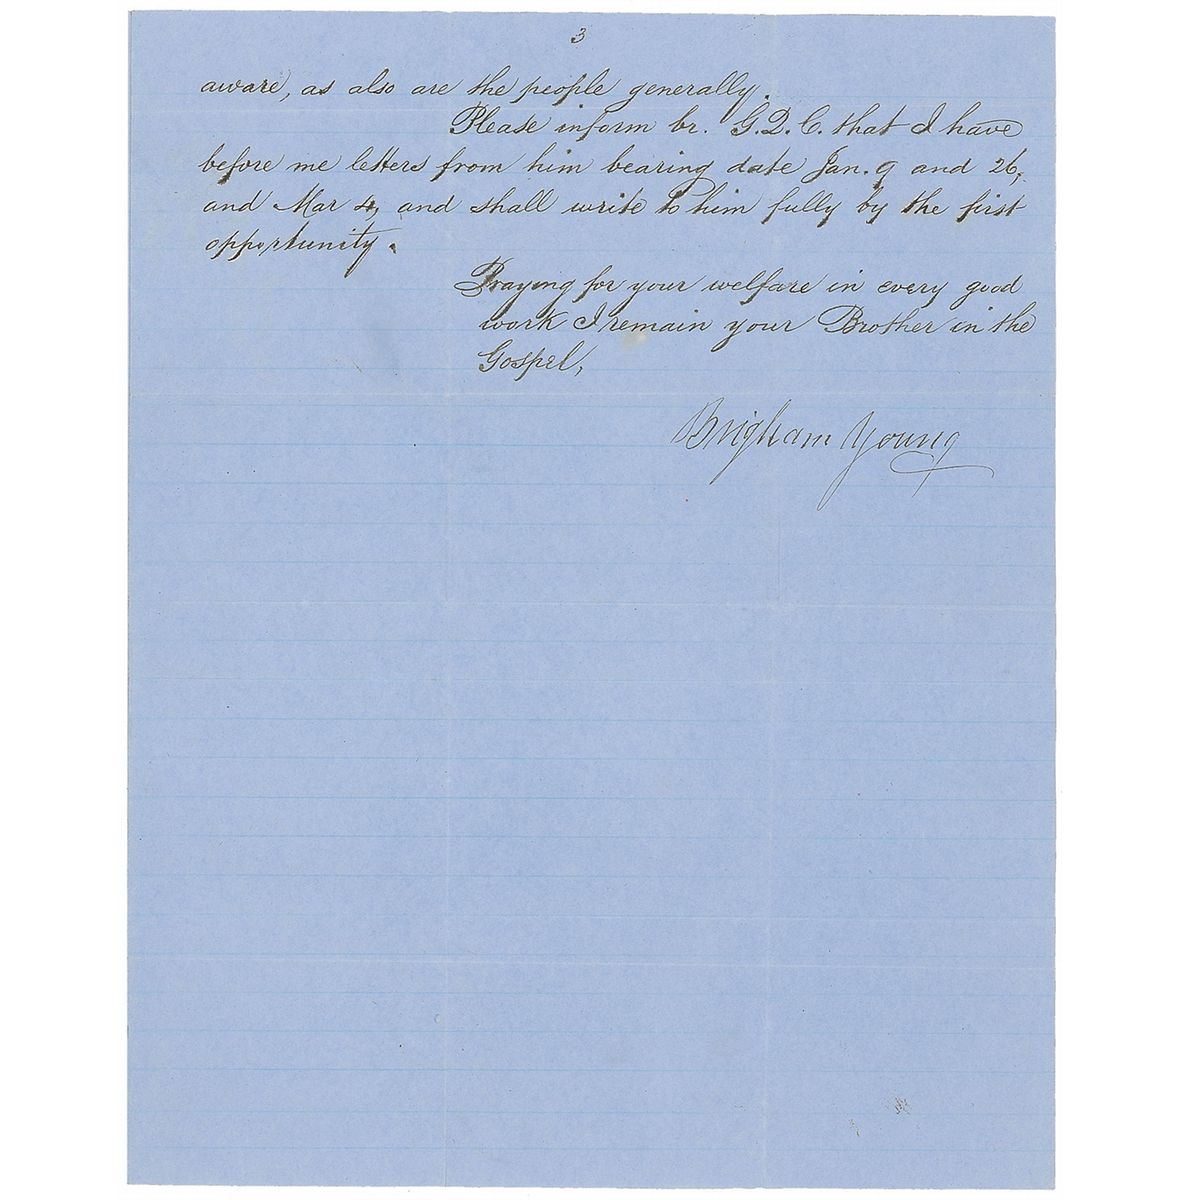 3
aware, as also are the people generally.
Please inform br. G.D.C. that I have
before me letters from him bearing date Jan. 9 and 26,
and Mar 4, and shall write to him fully by the first
opportunity.
Praying for your welfare in every good
work I remain your Brother in the
Gospel,
Brigham Young